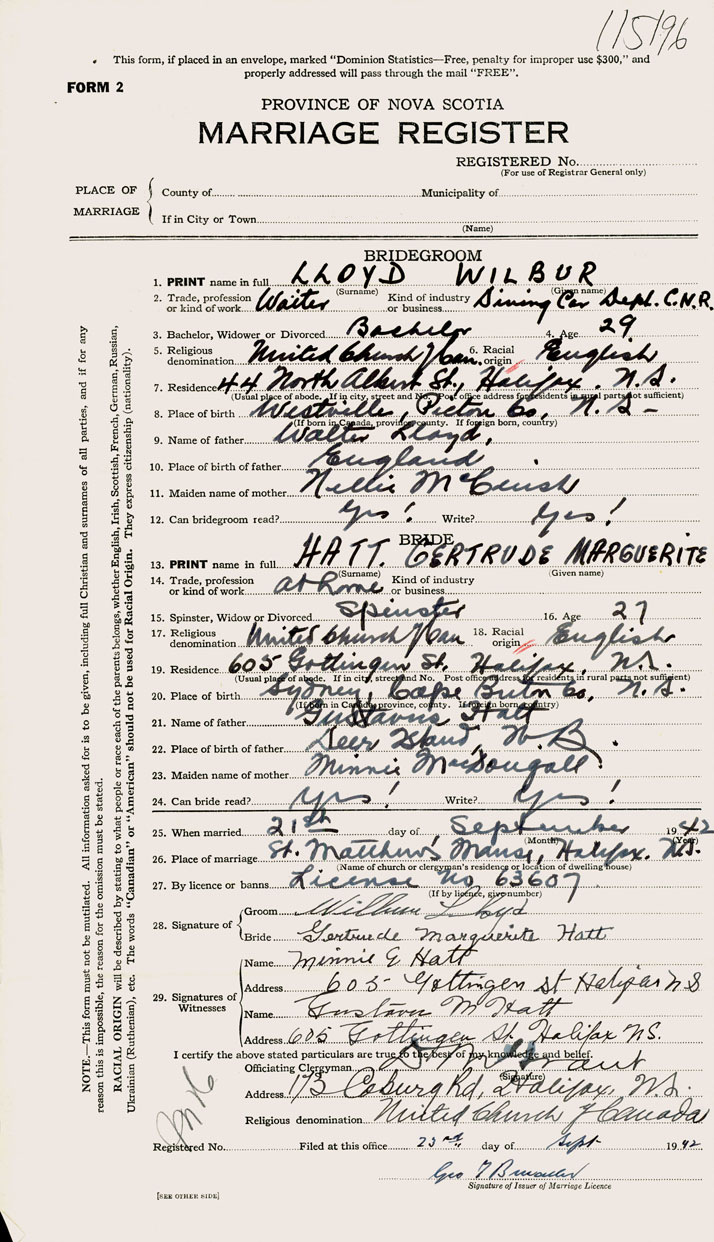 115196
This form, if placed in an envelope, marked "Dominion Statistics—Free, penalty for improper use $300," and
properly addressed will pass through the mail "FREE".
FORM 2
PROVINCE OF NOVA SCOTIA
MARRIAGE REGISTER
REGISTERED No.
(For use of Registrar General only)
PLACE OF MARRIAGE
County of Municipality of
If in City or Town
(Name)
BRIDEGROOM
1. PRINT name in full LLOYD WILBUR
(Surname) (Given name)
2. Trade, profession or kind of work Waiter Kind of industry or business Dining Car Dept. C.N.R.
3. Bachelor, Widower or Divorced Bachelor 4. Age 29
5. Religious denomination United Church of Can. 6. Racial origin English
7. Residence 44 North Albert St., Halifax. N.S.
(Usual place of abode. If in city, street and No. Post office address for residents in rural parts not sufficient)
8. Place of birth Westville, Pictou Co, N.S—
(If born in Canada, province, county. If foreign born, country)
9. Name of father Walter Lloyd,
10. Place of birth of father England
11. Maiden name of mother Nellie McCuish
12. Can bridegroom read? Yes! Write? Yes!
BRIDE
13. PRINT name in full HATT. GERTRUDE MARGUERITE
(Surname) (Given name)
14. Trade, profession or kind of work at Home Kind of industry or business
15. Spinster, Widow or Divorced Spinster 16. Age 27
17. Religious denomination United Church of Can 18. Racial origin English
19. Residence 605 Gottingen St. Halifax, N.S.
(Usual place of abode. If in city, street and No. Post office address for residents in rural parts not sufficient)
20. Place of birth Sydney, Cape Breton Co, N.S.
(If born in Canada, province, county. If foreign born, country)
21. Name of father Gustavus Hatt
22. Place of birth of father Deer Island, N.B.
23. Maiden name of mother Minnie MacDougall.
24. Can bride read? Yes! Write? Yes!
25. When married 21st day of September 1942
(Month) (Year)
26. Place of marriage St. Matthew's Manse, Halifax. N.S.
(Name of church or clergyman's residence or location of dwelling house)
27. By licence or banns License No 63607
(If by licence, give number)
28. Signature of
Groom Wilbur Lloyd
Bride Gertrude Marguerite Hatt
29. Signatures of Witnesses
Name Minnie E Hatt
Address 605 Gottingen St Halifax N S
Name Gustavus M Hatt
Address 605 Gottingen St. Halifax N.S.
I certify the above stated particulars are true to the best of my knowledge and belief.
Officiating Clergyman Grant
(Signature)
Address 173 Coburg Rd, Halifax, N.S.
Religious denomination United Church of Canada
Registered No. Filed at this office 23rd day of Sept 1942
Geo
Signature of Issuer of Marriage Licence
[SEE OTHER SIDE]
NOTE.—This form must not be mutilated. All information asked for is to be given, including full Christian and surnames of all parties, and if for any
reason this is impossible, the reason for the omission must be stated.
RACIAL ORIGIN will be described by stating to what people or race each of the parents belongs, whether English, Irish, Scottish, French, German, Russian,
Ukrainian (Ruthenian), etc. The words "Canadian" or "American" should not be used for Racial Origin. They express citizenship (nationality).